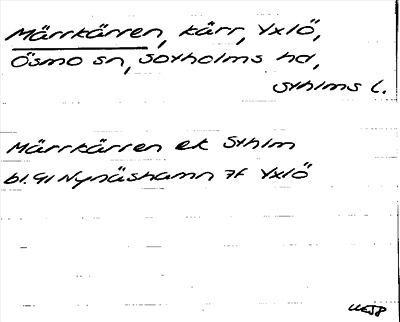 Märrkärren, kärr, Yxlö,
Ösmo sn, Sotholms hd,
Sthlms l.
Märrkärren ek Sthlm
bl. 91 Nynäshamn 7f Yxlö